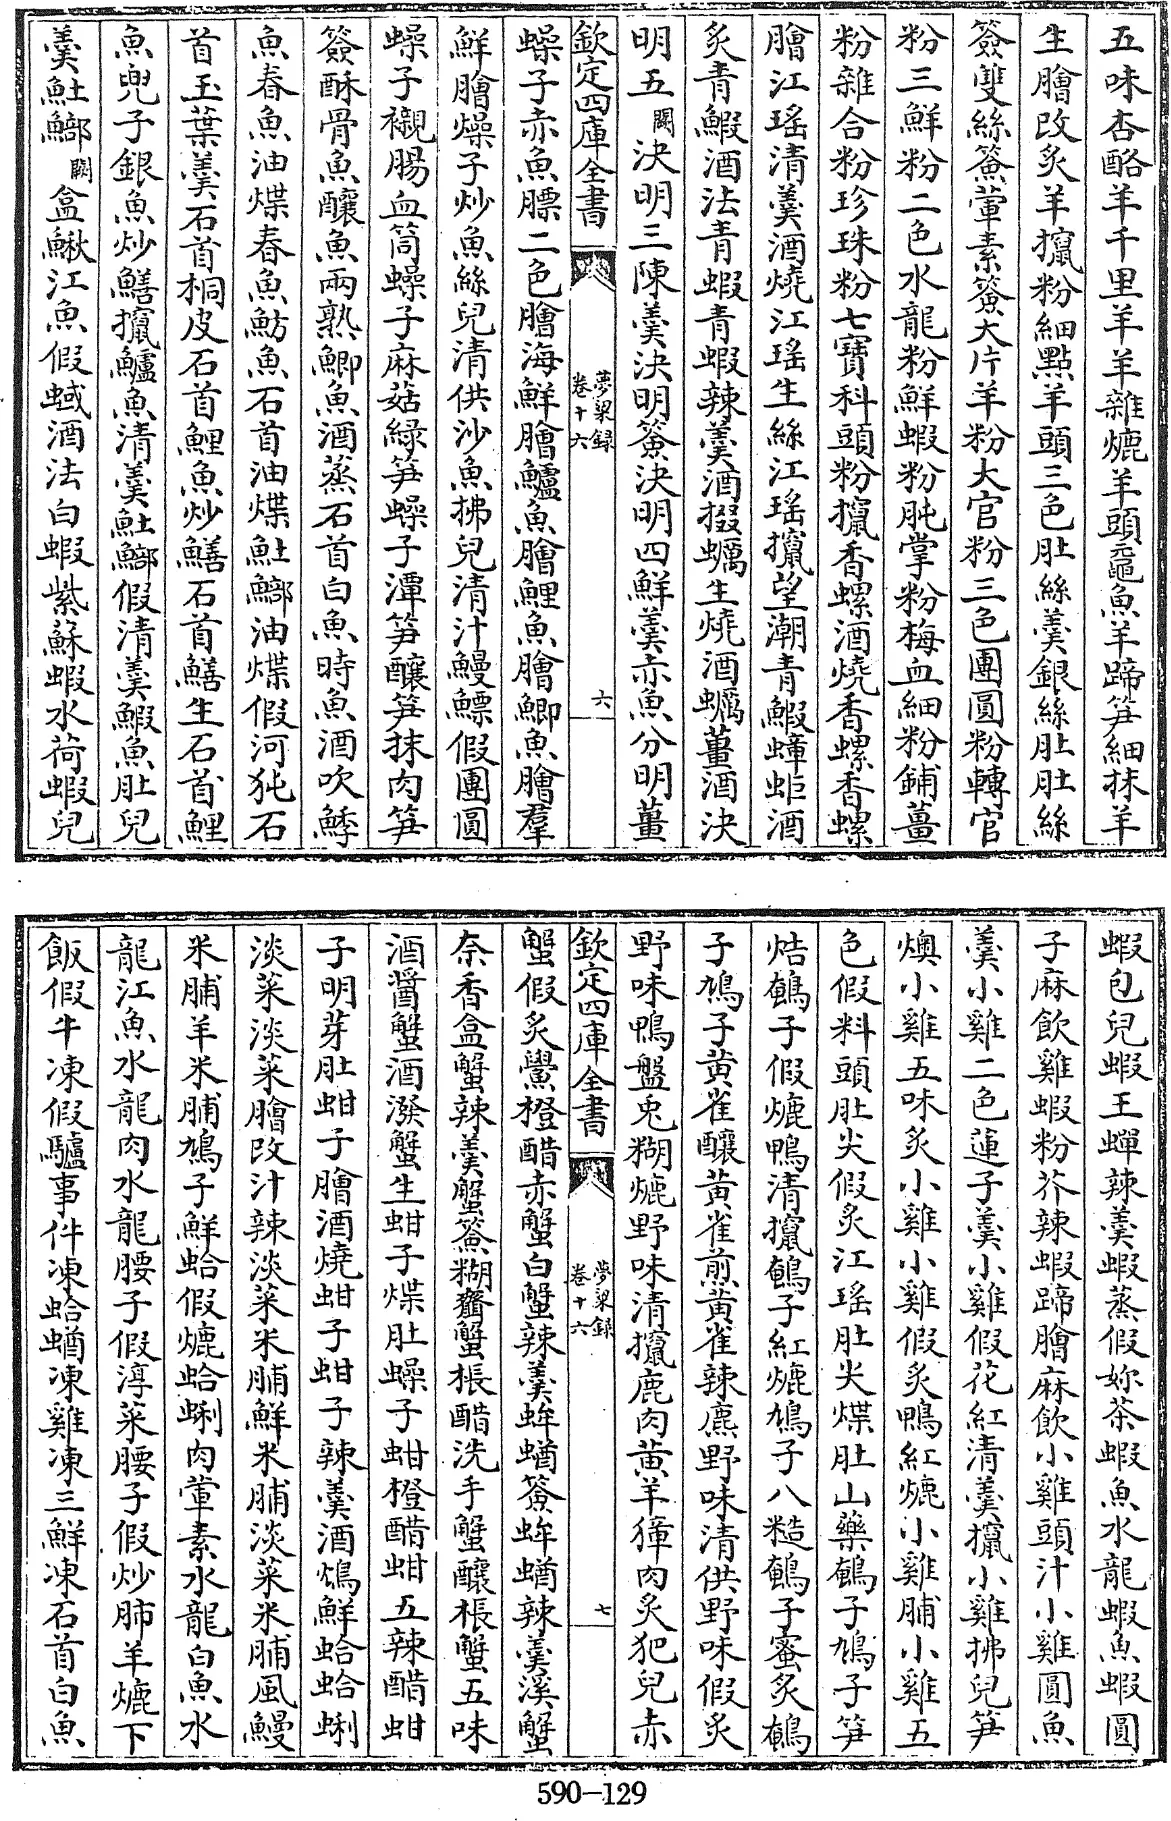 五味杏酪羊千里羊羊雜熝羊頭黿魚羊蹄笋細抹羊
生膾改炙羊攛粉細點羊頭三色肚絲羮銀絲肚肚絲
簽雙絲簽葷素簽大片羊粉大官粉三色團圓粉轉官
粉三鮮粉二色水龍粉鮮蝦粉肫掌粉梅血細粉鋪薑
粉雜合粉珍珠粉七寶科頭粉攛香螺酒燒香螺香螺
膾江瑤清羮酒燒江瑤生絲江瑤攛望潮青鰕蟑蚷酒
炙青鰕酒法青蝦青蝦辣羮酒掇蠣生燒酒蠣薑酒決
明五闕決明三陳羮決明簽決明四鮮羮赤魚分明薑
欽定四庫全書
夢粱録
卷十六
六
蟝子赤魚膘二色膾海鮮膾鱸魚膾鯉魚膾鯽魚膾羣
鮮膾燥子炒魚絲兒清供沙魚拂兒清汁鰻鰾假團圓
蟝子襯腸血筒蟝子麻菇綠笋蟝子潭笋釀笋抹肉笋
簽酥骨魚釀魚兩熟鯽魚酒蒸石首白魚時魚酒吹鯚
魚春魚油煠春魚魴魚石首油煠魠䲘油煠假河㹠石
首玉葉羮石首桐皮石首鯉魚炒鱔石首鱔生石首鯉
魚兜子銀魚炒鱔攛鱸魚清羮魠䲘假清羮鰕魚肚兒
羮魠䲘闕盒鰍江魚假䗐酒法白蝦紫蘇蝦水荷蝦兒
蝦包兒蝦王蟬辣羮蝦蒸假妳茶蝦魚水龍蝦魚蝦圓
子麻飲雞蝦粉芥辣蝦蹄膾麻飲小雞頭汁小雞圓魚
羮小雞二色蓮子羮小雞假花紅清羮攛小雞拂兒笋
燠小雞五味炙小雞小雞假炙鴨紅熝小雞脯小雞五
色假料頭肚尖假炙江瑤肚尖煠肚山藥鵪子鳩子笋
焅鵪子假熝鴨清攛鵪子紅熝鳩子八糙鵪子蜜炙鵪
子鳩子黄雀釀黄雀煎黄雀辣麃野味清供野味假炙
野味鴨盤兎糊熝野味清攛鹿肉黄羊獐肉炙犯兒赤
欽定四庫全書
夢粱録
卷十六
七
蟹假炙鱟橙醋赤蟹白蟹辣羮蛑蝤簽蛑蝤辣羮溪蟹
柰香盒蟹辣羮蟹簽糊齏蟹棖醋洗手蟹釀棖蟹五味
酒醬蟹酒潑蟹生蚶子煠肚蟝子蚶橙醋蚶五辣醋蚶
子明芽肚蚶子膾酒燒蚶子蚶子辣羮酒鴆鮮蛤蛤蜊
淡菜淡菜膾改汁辣淡菜米脯鮮米脯淡菜米脯風鰻
米脯羊米脯鳩子鮮蛤假熝蛤蜊肉葷素水龍白魚水
龍江魚水龍肉水龍腰子假淳菜腰子假炒肺羊熝下
飯假牛凍假驢事件凍蛤蝤凍雞凍三鮮凍石首白魚
590-129